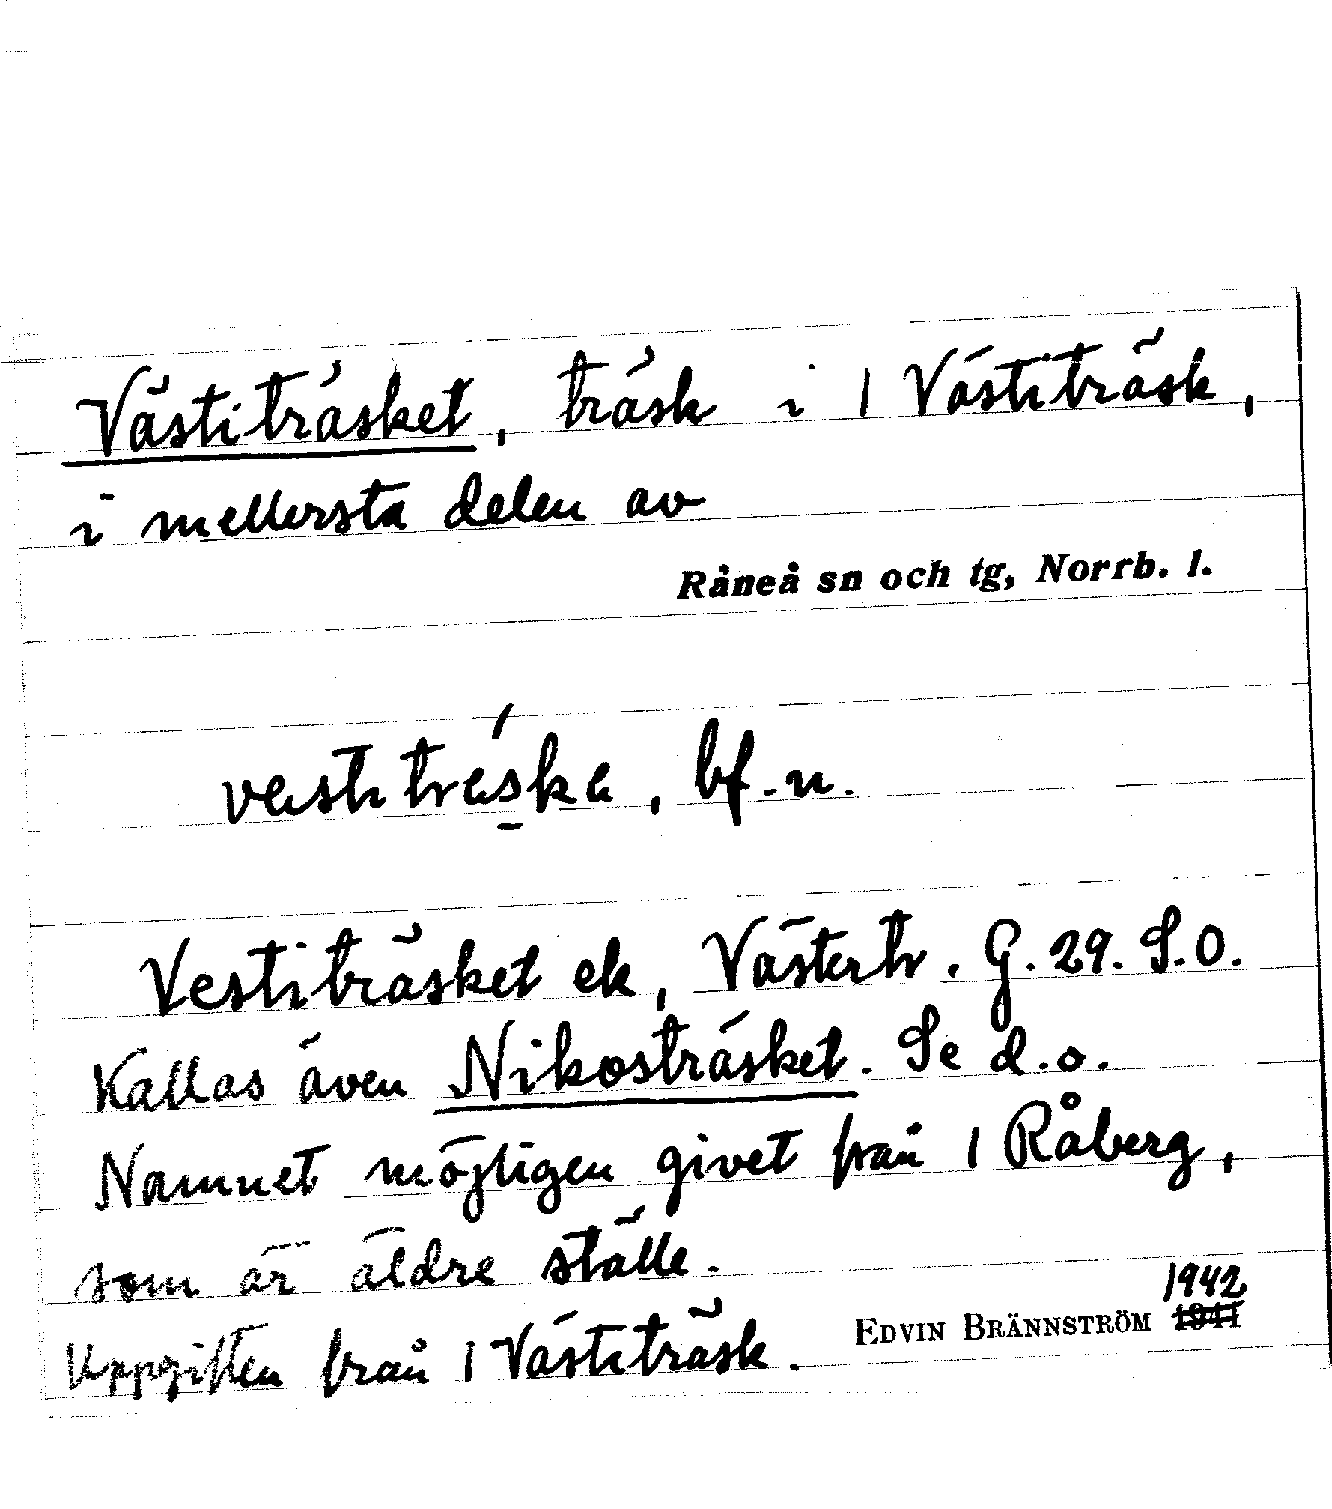 Västiträsket, träsk i 1 Västiträsk,
i mellersta delen av
Råneå sn och tg, Norrb. l.
vestitréska, bf. n.
Vestiträsket ek, Västertr. G. 29. S.O.
Kallas även Nikosträsket. Se d.o.
Namnet möjligen givet från 1 Råberg,
som är äldre ställe.
1942
Uppgiften från 1 Västiträsk. EDVIN BRÄNNSTRÖM 1941